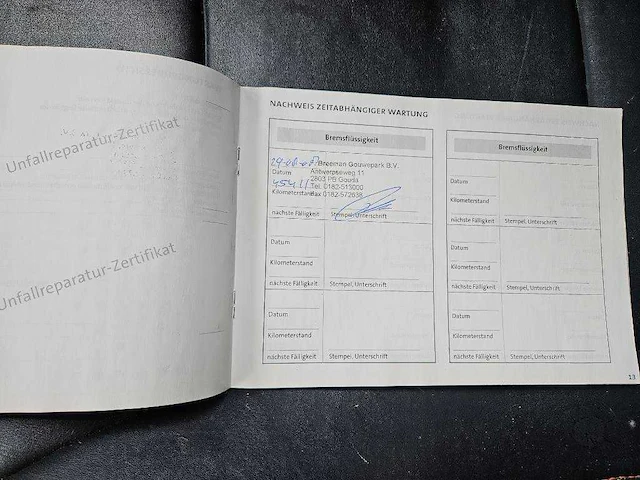 Unfallreparatur-Zertifikat
Unfallreparatur-Zertifikat
NACHWEIS ZEITABHÄNGIGER WARTUNG
Bremsflüssigkeit
Datum
Kilometerstand
Gouwepark B.V.
Antwerpseweg 11
2803 PB Gouda
Tel. 0182-513000
Fax 0182-572638
nächste Fälligkeit Stempel, Unterschrift
Datum
Kilometerstand
nächste Fälligkeit Stempel, Unterschrift
Datum
Kilometerstand
nächste Fälligkeit Stempel, Unterschrift
Bremsflüssigkeit
Datum
Kilometerstand
nächste Fälligkeit Stempel, Unterschrift
Datum
Kilometerstand
nächste Fälligkeit Stempel, Unterschrift
Datum
Kilometerstand
nächste Fälligkeit Stempel, Unterschrift
13